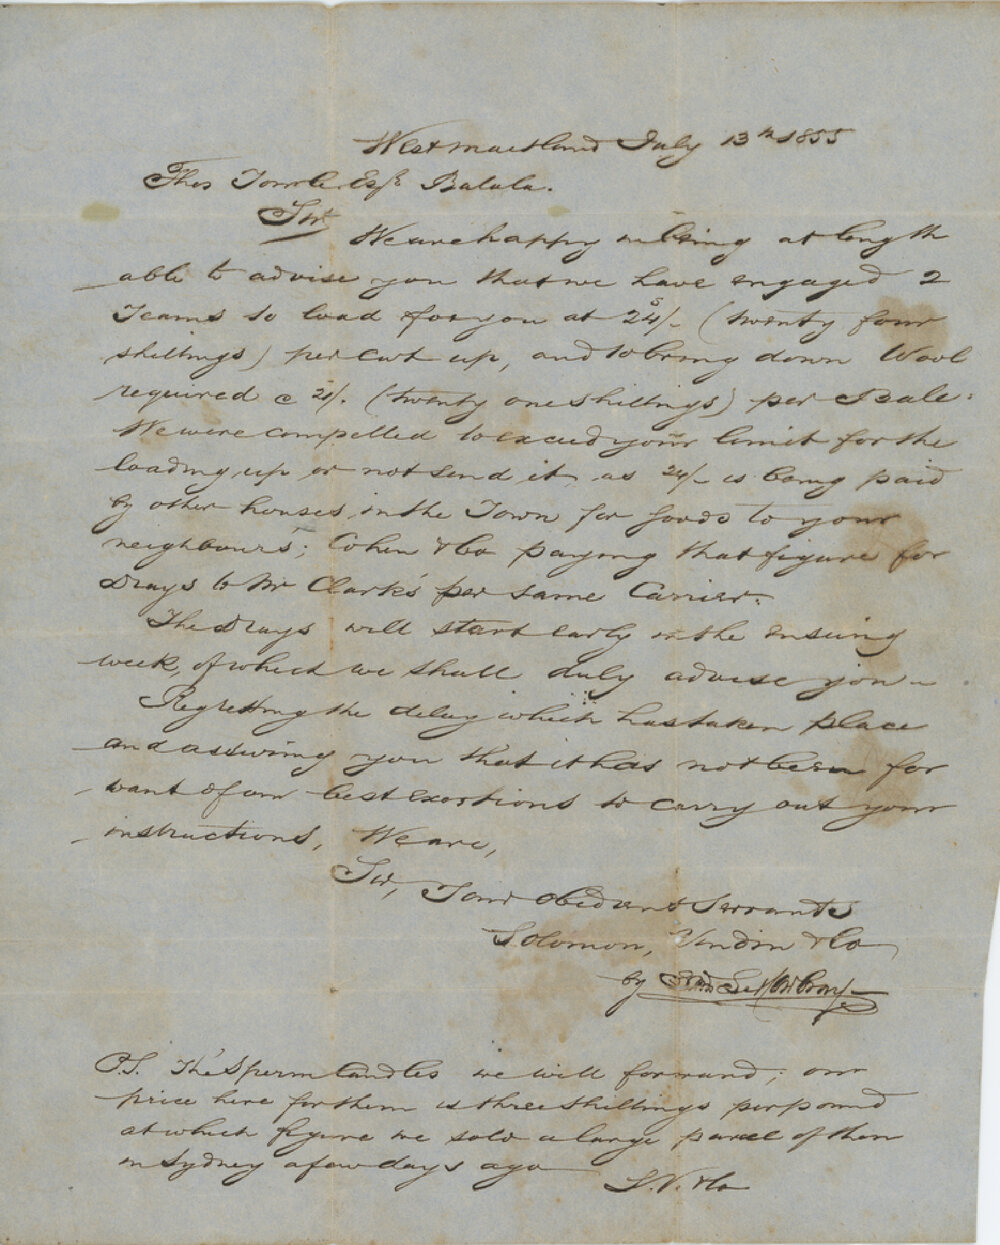 West Maitland July 13th 1855
Thos Esqr Batala.
Sir
We are happy in being at length
able to advise you that we have engaged 2
Teams to load for you at 24/- (twenty four
shillings) per cwt up, and to bring down Wool
required @ 21/- (twenty one shillings) per Bale:
We were compelled to exceed your limit for the
loading up or not send it, as 24/- is being paid
by other houses in the Town for goods to your
neighbours; Cohen & Co paying that figure for
Drays to Mr Clark's per same Carrier.
The Drays will start early in the ensuing
week, of which we shall duly advise you -
Regretting the delay which has taken place
and assuring you that it has not been for
want of our best exertions to carry out your
instructions, We are,
Sir, Your Obedient Servants
Solomon, Vindin & Co
by
P.S. The Sperm Candles we will forward; our
price here for them is three shillings per pound
at which figure we sold a large parcel of them
in Sydney a few days ago
S. V. & Co